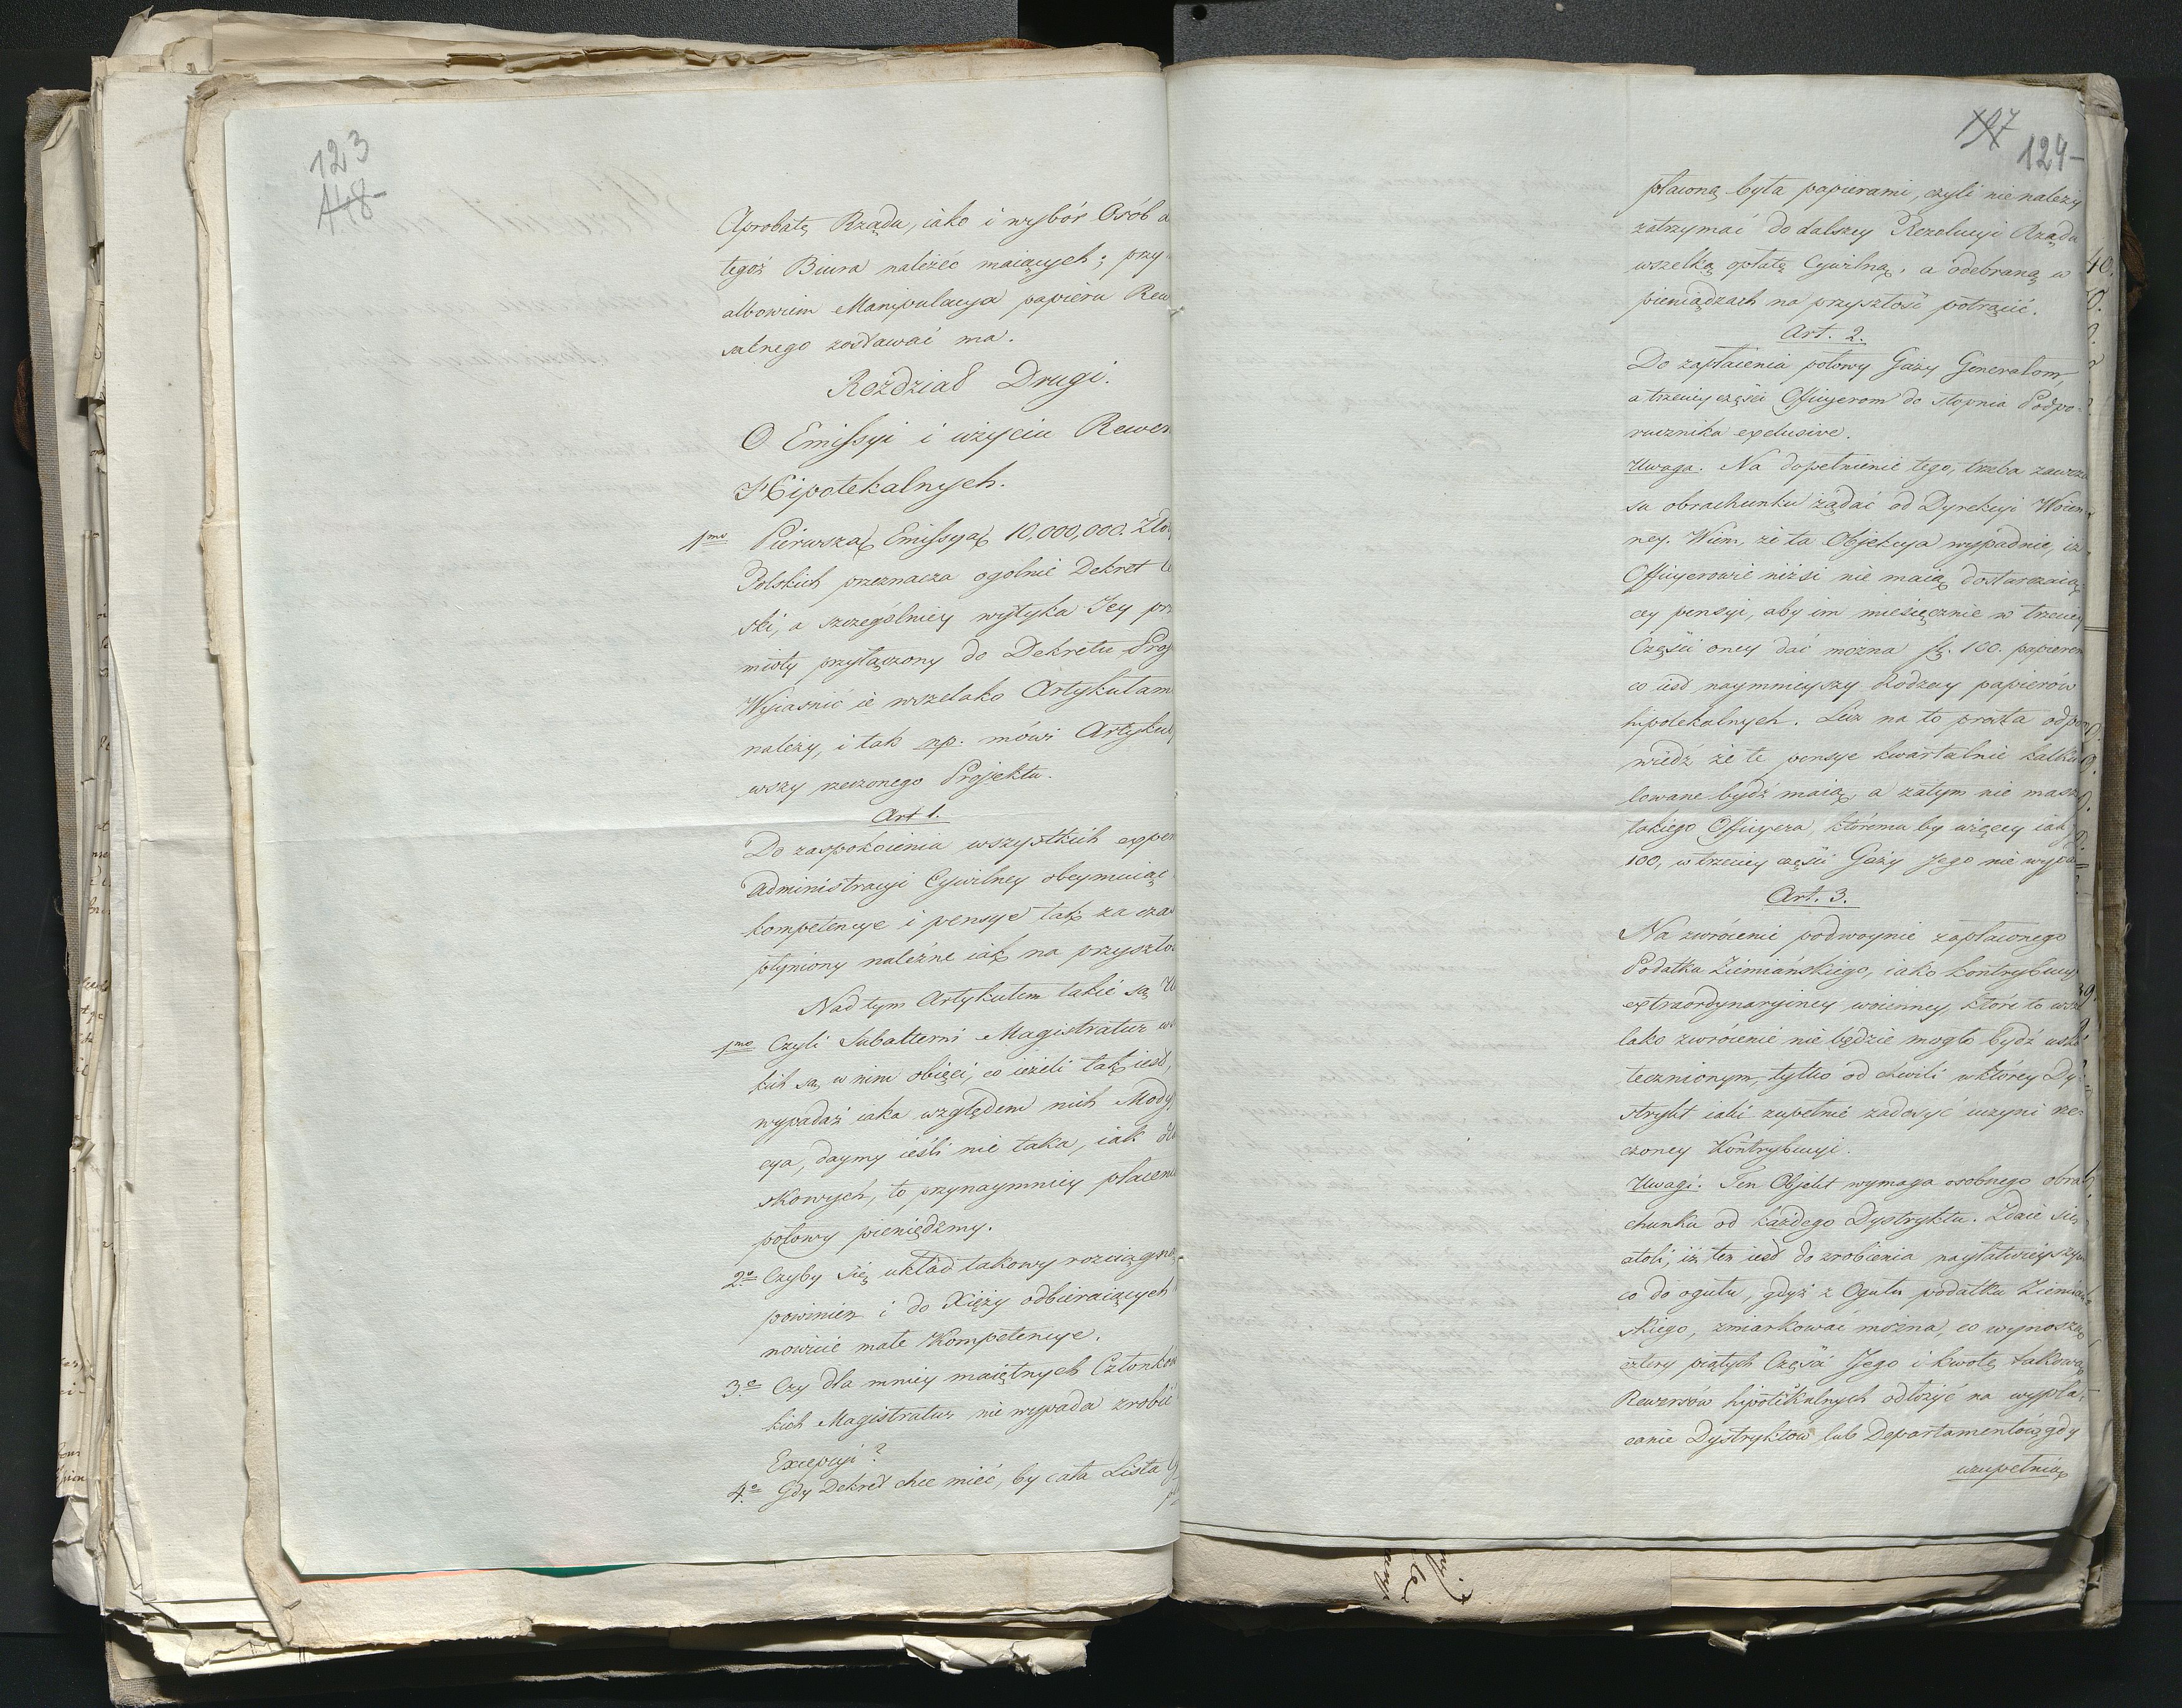 123
118
Aprobatę Rządu, iako i wybór Osób d
tegoż Biura należeć maiących; przy
albowiem Manipulacya papieru Rew
salnego zostawać ma.
Rozdział Drugi.
O Emissyi i użyciu Rewer
Hipotekalnych.
1mo Pierwszą Emissyą 10,000,000. Zło
Polskich przeznacza ogolnie Dekret
ski, a szczególniey wytyka Jey prz
mioty przyłączony do Dekretu Proj
Wyiaśnić ie wszelako Artykułam
należy, i tak np: mówi Artykuł
wszy rzeczonego Projektu.
Art 1.
Do zaspokoienia wszystkich expen
Administracyi Cywilney obeymuiąc
kompetencye i pensye tak za czas
płyniony należne iak na przyszło
Nad tym Artykułem takie są
1mo Czyli Subalterni Magistratur w
kich są w nim obięci, co ieżeli tak iest,
wypadaż iaka względem nich Mody
cya, daymy ieśli nie taka, iak
skowych, to przynaymniey płaceni
połowy pieniędzmy.
2o Czyby się układ takowy rozciągną
powinien i do Xięży odbieraiących
nowicie małe Kompetencye.
3o Czy dla mniey maiętnych Członków
kich Magistratur nie wypada zrobić
Excepcyi?
4o Gdy Dekret chce mieć, by cała Lista
197
124-
płaconą była papierami, czyli nie należy
zatrzymać do dalszey Rezolucyi Rządu
wszelką opłatę Cywilną, a odebraną w
pieniądzach na przyszłość potrącić.
Art. 2.
Do zapłacenia połowy Gaży Generałom,
a trzeciey części Officyerom do stopnia Podpo-
rucznika exclusive.
Uwaga. Na dopełnienie tego, trzeba zawcza
su obrachunku żądać od Dyrekcyi Woien
ney. Wiem, że ta Objekcya wypadnie, iż
Officyerowie niżsi nie maią dostarczaią
cey pensyi, aby im miesięcznie w trzeciey
Części oney dać można fl. 100. papierem
co iest naymnieyszy Rodzay papierów
hipotekalnych. Lecz na to prosta odpo
wiedź że te pensye kwartalnie kalku
lowane bydź maią, a zatym nie masz
takiego Officyera, któremu by więcey iak
100, w trzeciey części Gaży Jego nie wypa
Art. 3.
Na zwrócenie podwoynie zapłaconego
Podatku Ziemiańskiego, iako kontrybucyi
extraordynaryiney woienney, które to wsze
lako zwrócenie nie będzie mogło bydź usku
tecznionym, tylko od chwili w którey Dy-
strykt iaki zupełnie zadosyć uczyni rze-
czoney Kontrybucyi.
Uwagi. Ten Objekt wymaga osobnego obra
chunku od każdego Dystryktu. Zdaie się
atoli, iż ten iest do zrobienia nayłatwieyszym
co do ogułu, gdyż z Ogułu podatku Ziemiań
skiego, zmiarkować można, co wynoszą
cztery piątych Części Jego i kwotę takową
Rewersów hipotekalnych odłożyć na wypła-
canie Dystryktów lub Departamentów, gdy
uzupełnią